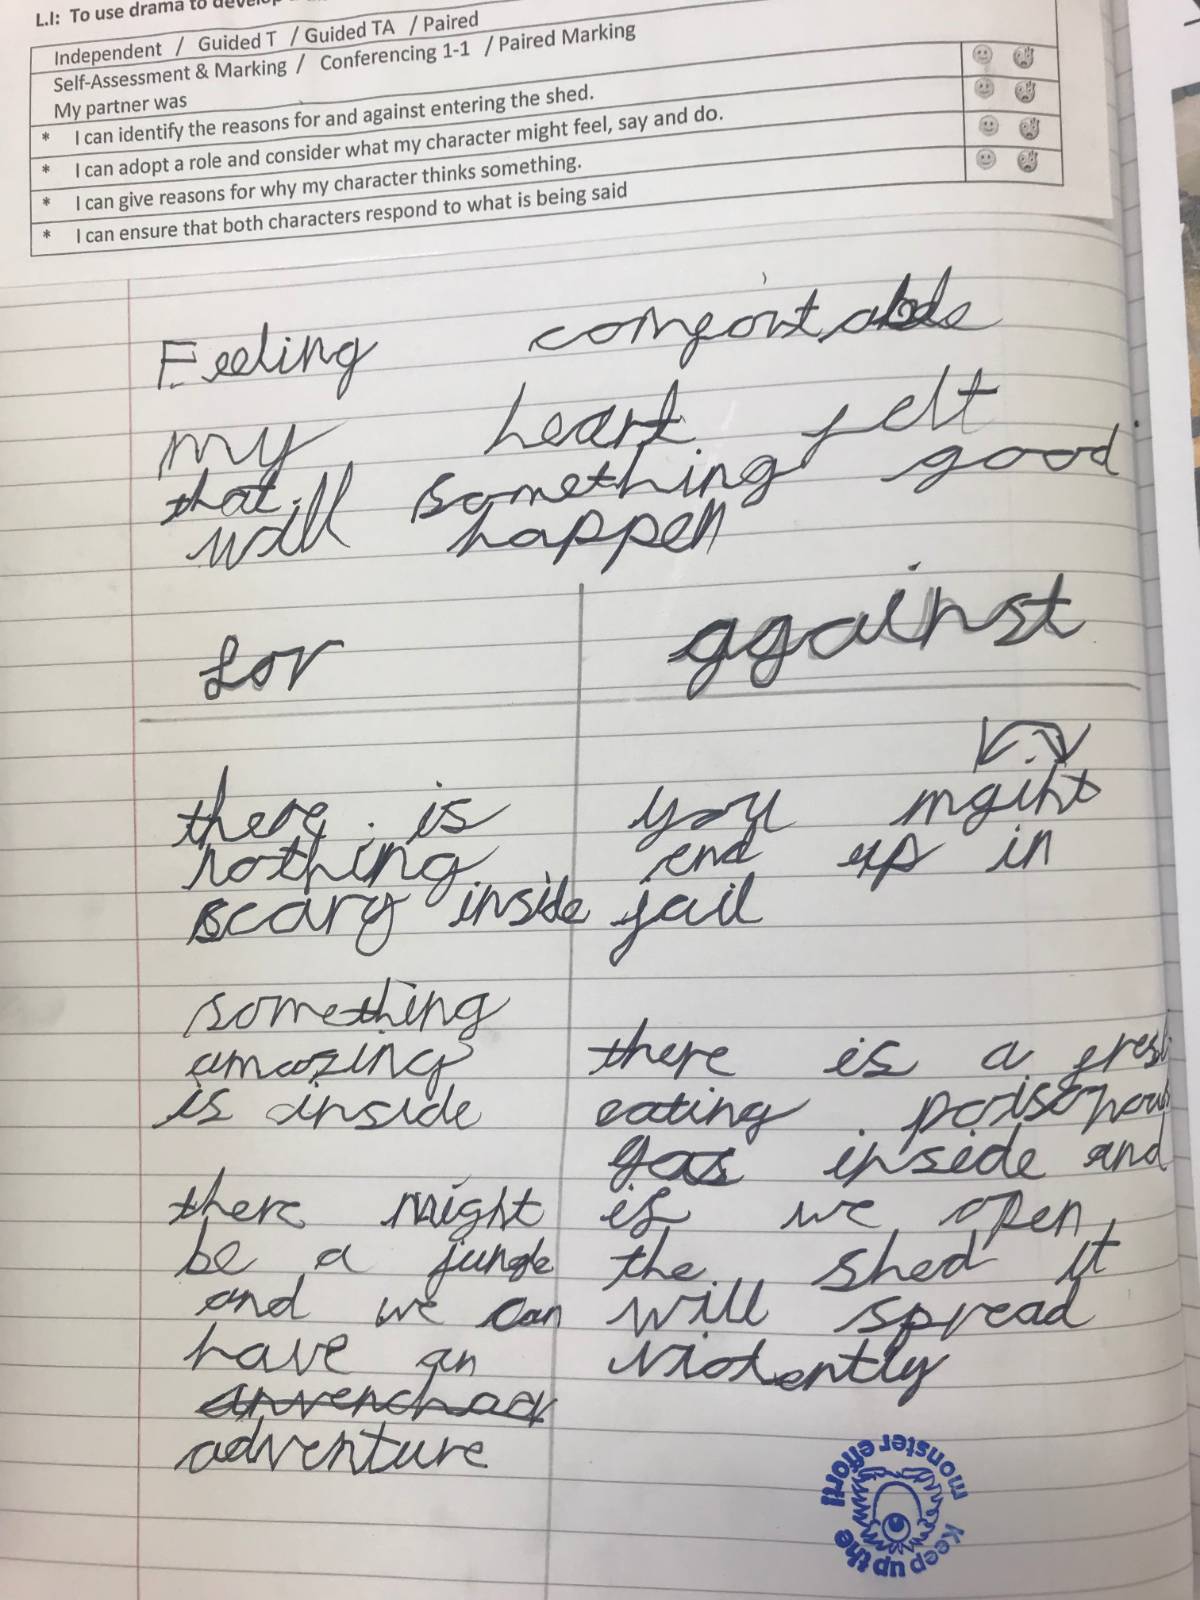 L.I: To use drama to develop
Independent / Guided T / Guided TA / Paired
Self-Assessment & Marking / Conferencing 1-1 / Paired Marking
My partner was
* I can identify the reasons for and against entering the shed.
* I can adopt a role and consider what my character might feel, say and do.
* I can give reasons for why my character thinks something.
* I can ensure that both characters respond to what is being said
Feeling comfortable
my heart felt
that will something good
will happen
for
there is
nothing
scary inside
something
amazing
is inside
there might
be a jungle
and we can
have an
adventure
against
you mgiht
end up in
jail
there is a
eating poisonous
gas inside and
if we open
the shed it
will spread
violently
Keep up the
monster effort!